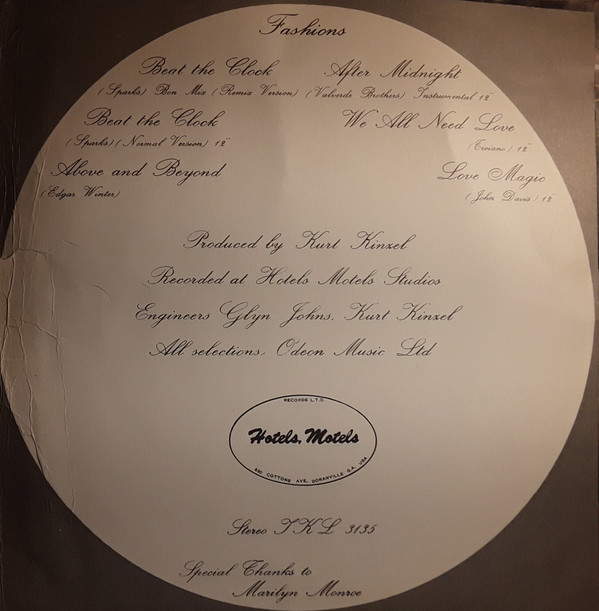 Fashions
Beat the Clock
(Sparks) Bon Mix (Remix Version)
Beat the Clock
(Sparks) (Normal Version) 12"
Above and Beyond
(Edgar Winter)
After Midnight
(Valverde Brothers) Instrumental 12"
We All Need Love
(Troiano) 12"
Love Magic
(John Davis) 12"
Produced by Kurt Kinzel
Recorded at Hotels Motels Studios
Engineers Glyn Johns, Kurt Kinzel
All selections, Odeon Music Ltd
RECORDS L.T.D.
Hotels, Motels
COTTONS AVE. DORAHVILLE G.A. USA
Stereo TKL 3135
Special Thanks to
Marilyn Monroe